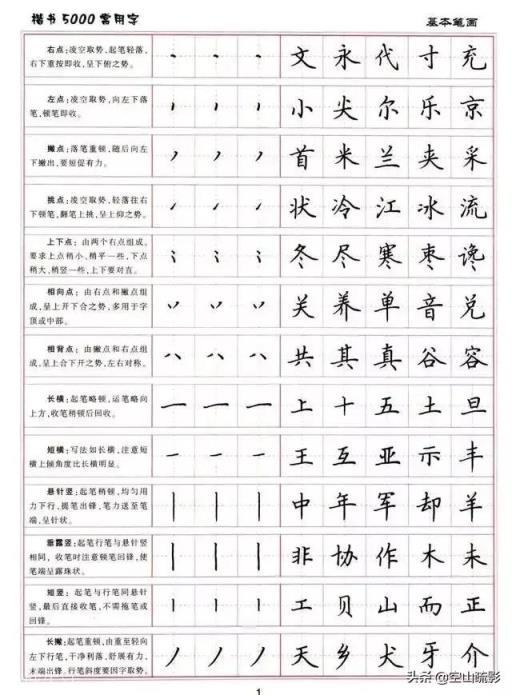 楷书5000常用字
基本笔画
右点：凌空取势，起笔轻落，
右下重按即收，呈下俯之势。
文 永 代 寸 充
左点：凌空取势，向左下落
笔，顿笔即收。
小 尖 尔 乐 京
撇点：落笔重顿，随后向左
下撇出，要短促有力。
首 米 兰 夹 采
挑点：凌空取势，轻落往右
下顿笔，翻笔上挑，呈上仰之势。
状 冷 江 冰 流
上下点：由两个右点组成，
要求上点稍小、稍平一些，下点
稍大，稍竖一些，上下要对直。
冬 尽 寒 枣 谗
相向点：由右点和撇点组
成，呈上开下合之势，多用于字
顶或中部。
关 养 单 音 兑
相背点：由撇点和右点组
成，呈上合下开之势，左右对称。
共 其 真 谷 容
长横：起笔略顿，运笔略向
上方，收笔稍顿后回收。
上 十 五 土 旦
短横：写法如长横，注意短
横上倾角度比长横明显。
王 互 亚 示 丰
悬针竖：起笔稍顿，均匀用
力下行，提笔出锋，笔力送至笔
端，呈针状。
中 年 军 却 羊
垂露竖：起笔行笔与悬针竖
相同，收笔时注意顿笔回锋，使
笔端呈露珠状。
非 协 作 木 未
短竖：起笔与行笔同悬针
竖，最后直接收笔，不需拖笔或
回锋。
工 贝 山 而 正
长撇：起笔重顿，由重至轻向
左下行笔，干净利落，舒展有力，
末端出锋，行笔斜度要因字取势。
天 乡 犬 牙 介
头条@空山疏影
1